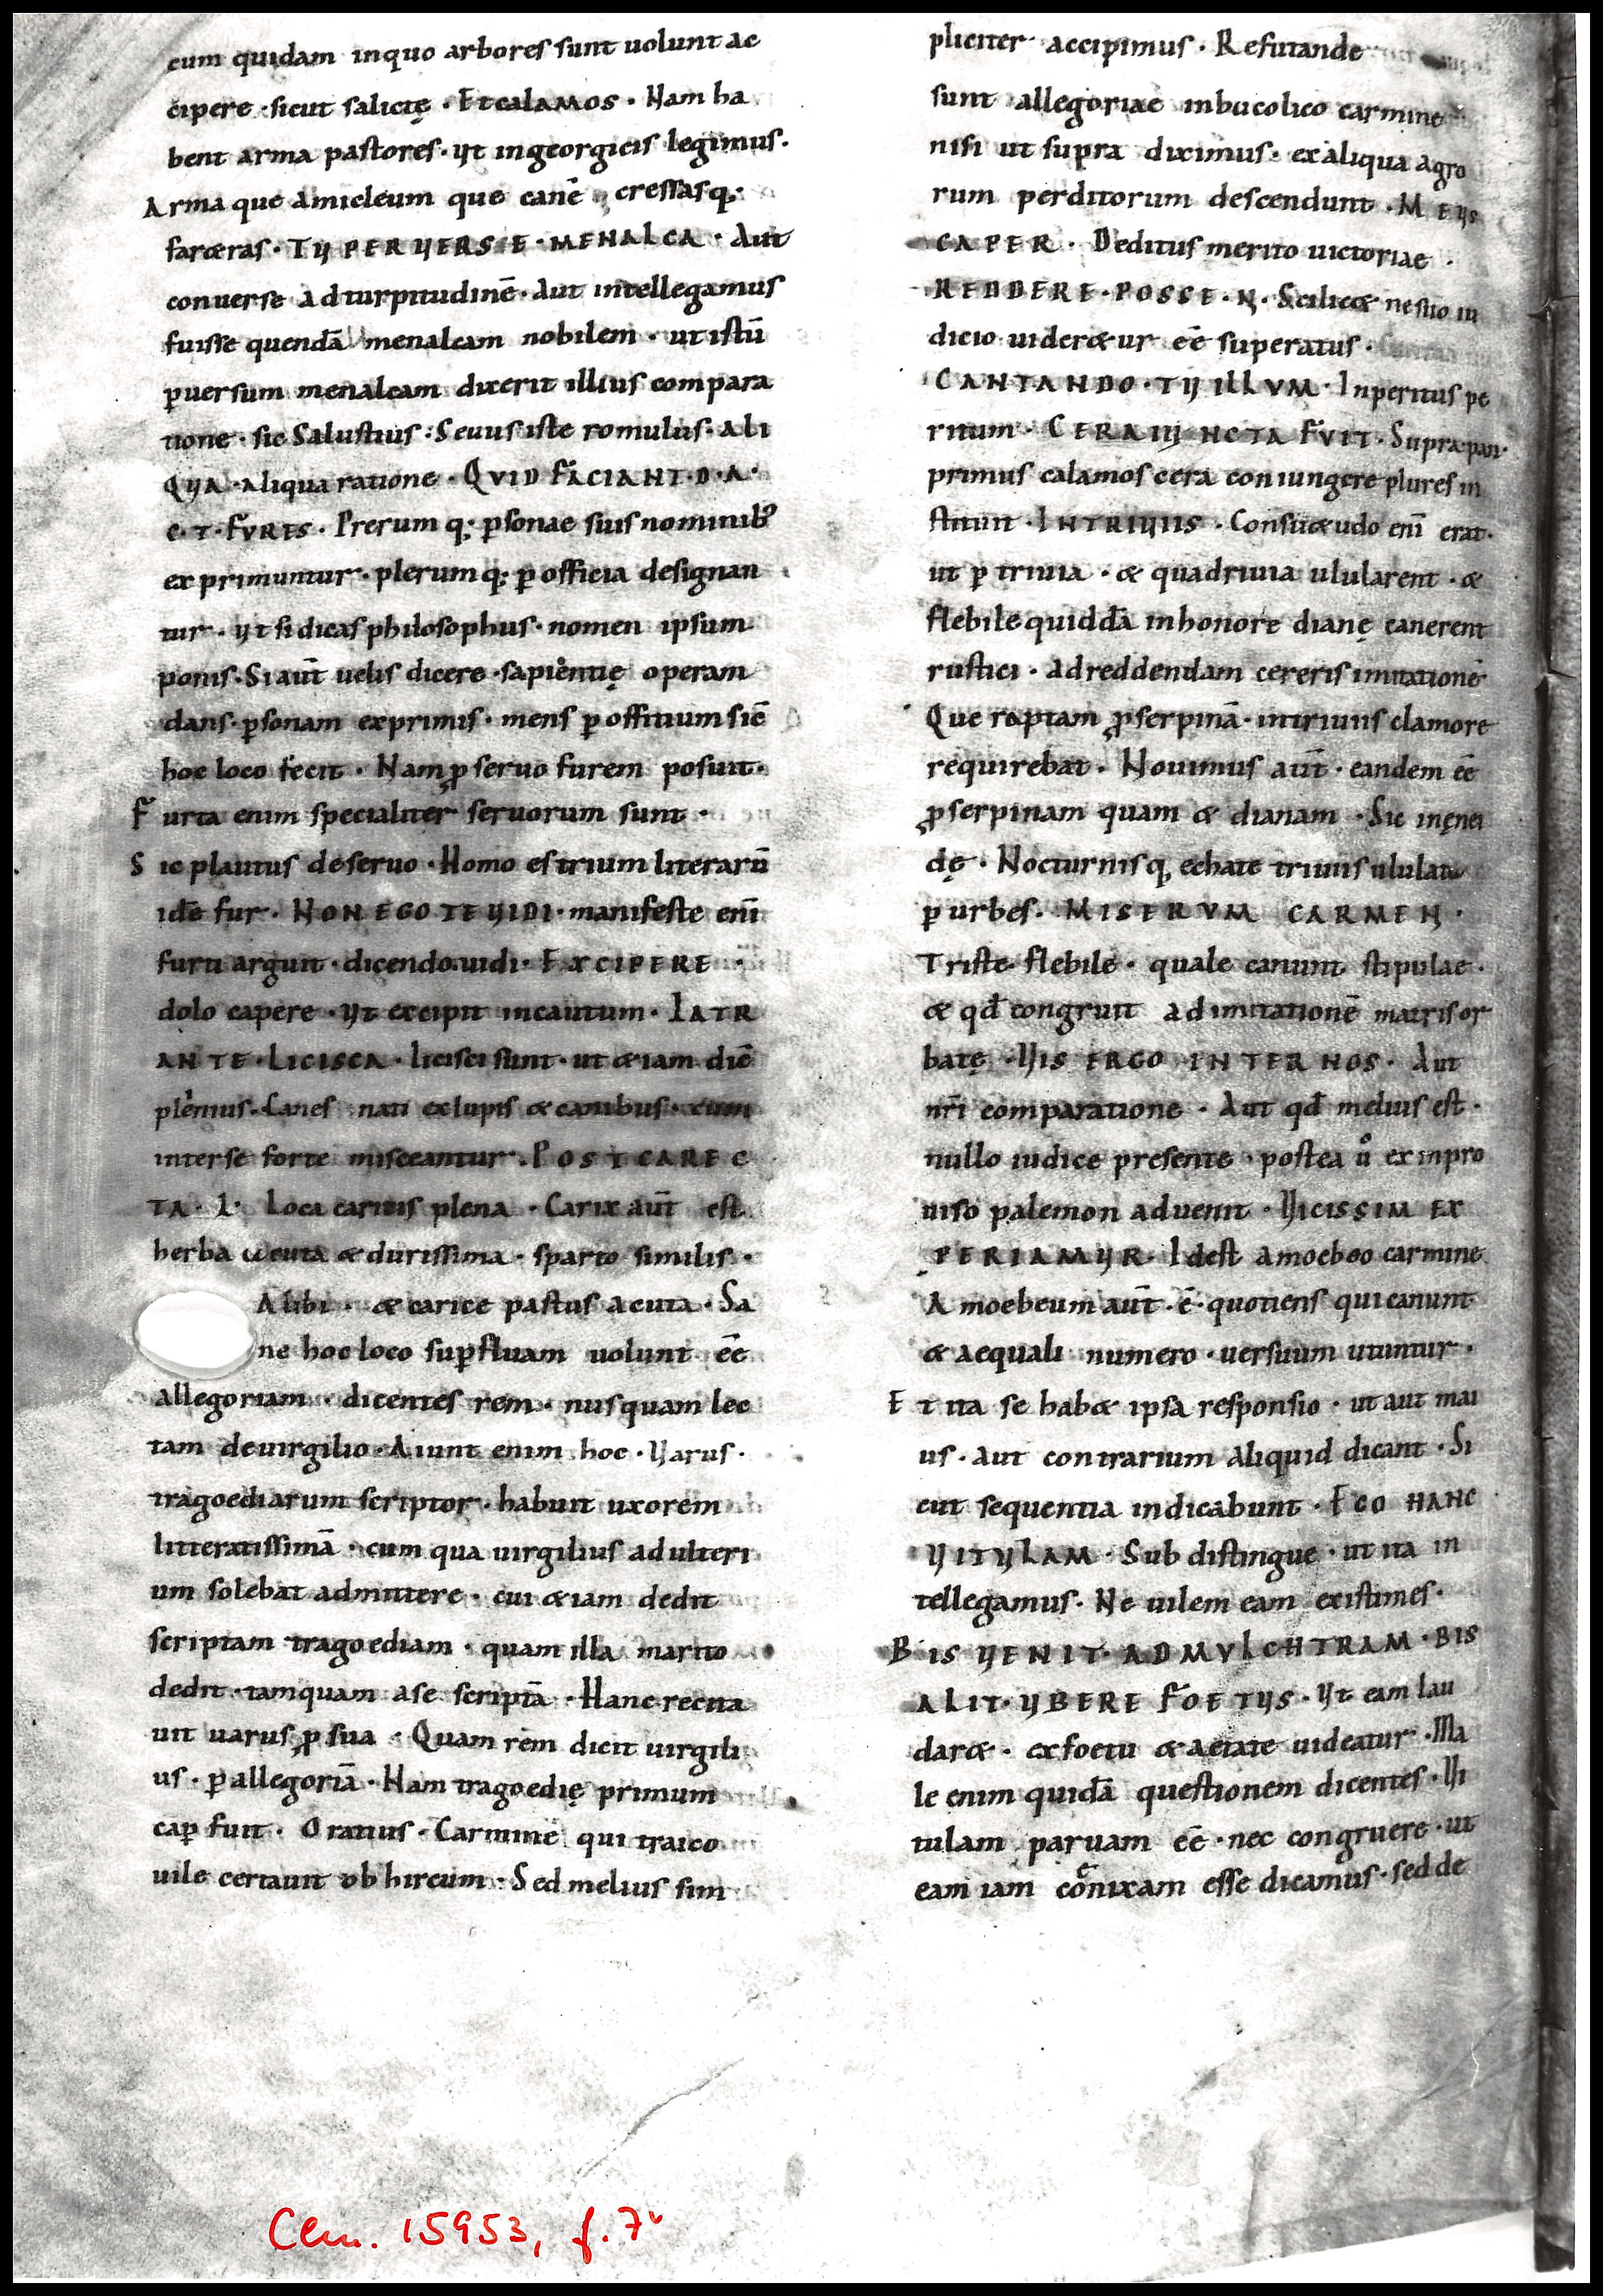 cum quidam inquo arbores sunt uolunt ac
cipere · sicut salictę · Et calamos · Nam ha
bent arma pastores · Vt in georgicis legimus ·
Arma que amicleum que canē cressasq;
faretras · TV PERVERSE · MENALCA · Aut
conuerse ad turpitudinē · Aut intellegamus
fuisse quendā menalcam nobilem · ut istū
ꝑuersum menalcam dixerit illius compara
tione · sic Salustius : Seuus iste romulus · ALI
QVA · Aliqua ratione · QVID FACIANT · D · A ·
C · T · FVRES · Plerumq; ꝑsonae suis nominibꝰ
exprimuntur · plerumq; ꝑ officia designan
tur · Vt si dicas philosophus · nomen ipsum
ponis · Si aūt uelis dicere · sapientię operam
dans · ꝑsonam exprimis · mens ꝑ offitium sic̄
hoc loco fecit · Nam ꝓ seruo furem posuit ·
Furta enim specialiter seruorum sunt ·
Sic plautus de seruo · Homo es trium literarū
idē fur · NON EGO TE VIDI · manifeste enī
furti arguit · dicendo uidi · EXCIPERE ·
dolo capere · Vt excipit incautum · LATR
ANTE · LICISCA · licisci sunt · ut etiam dic̄
plenius · Canes nati ex lupis & canibus · cum
inter se forte misceantur · POST CAREC
TA · L · Loca caricis plena · Carix aūt est
herba acuta & durissima · sparto similis ·
Alibi · & carice pastus acuta · Sa
ne hoc loco suꝑfluam uolunt eē
allegoriam · dicentes rem · nusquam lec
tam de uirgilio · Aiunt enim hoc · Varus ·
tragoediarum scriptor · habuit uxorem
litteratissimā · cum qua uirgilius adulteri
um solebat admittere · cui &iam dedit
scriptam tragoediam · quam illa marito
dedit · tamquam a se scriptā · Hanc recita
uit uarus ꝓ sua · Quam rem dicit uirgili
us · ꝑ allegoriā · Nam tragoedię primum
caꝑ fuit · Oratius · Carmine qui traico
uile certauit ob hircum · Sed melius sim
pliciter accipimus · Refutande
sunt allegoriae in bucolico carmine
nisi ut supra diximus · ex aliqua agro
rum perditorum descendunt · MEVS
CAPER · Deditus merito uictoriae ·
REDDERE · POSSE · N · Scilic& ne suo iu
dicio uider&ur eē superatus ·
CANTANDO · TV ILLVM · Inperitus pe
ritum · CERA IVNCTA FVIT · Supra pan ·
primus calamos cera coniungere plures in
stituit · IN TRIVIIS · Consu&udo enī erat ·
ut ꝑ triuia · & quadriuia ulularent · &
flebile quiddā in honore dianę canerent
rustici · ad reddendam cereris imitationē
Que raptam ꝓserpinā · in triuiis clamore
requirebat · Nouimus aūt · eandem eē
ꝓserpinam quam & dianam · Sic in ęnei
dę · Nocturnisq; echate triuiis ululata
ꝑ urbes · MISERVM CARMEN ·
Triste flebile · quale canunt stipulae ·
& qd̄ congruit ad imitationē matris or
batę · VIS ERGO INTER NOS · Aut
nr̄i comparatione · Aut qd̄ melius est ·
nullo iudice presente · postea uͦ ex inpro
uiso palemon aduenit · VICISSIM EX
PERIAMVR · Idest amoebeo carmine
Amoebeum aūt · ē · quotiens qui canunt
& aequali numero · uersuum utuntur ·
Et ita se hab& ipsa responsio · ut aut mai
us · aut contrarium aliquid dicant · Si
cut sequentia indicabunt · EGO HANC
VITVLAM · Subdistingue · ut ita in
tellegamus · Ne uilem eam existimes ·
BIS VENIT · AD MVLCHTRAM · BIS
ALIT · VBERE FOETVS · Vt eam lau
dar& · ex foetu & aetate uideatur · Ma
le enim quidā questionem dicentes · Vi
tulam paruam eē · nec congruere · ut
eam iam conixam esse dicamus · sed de
Clm. 15953, f. 7v